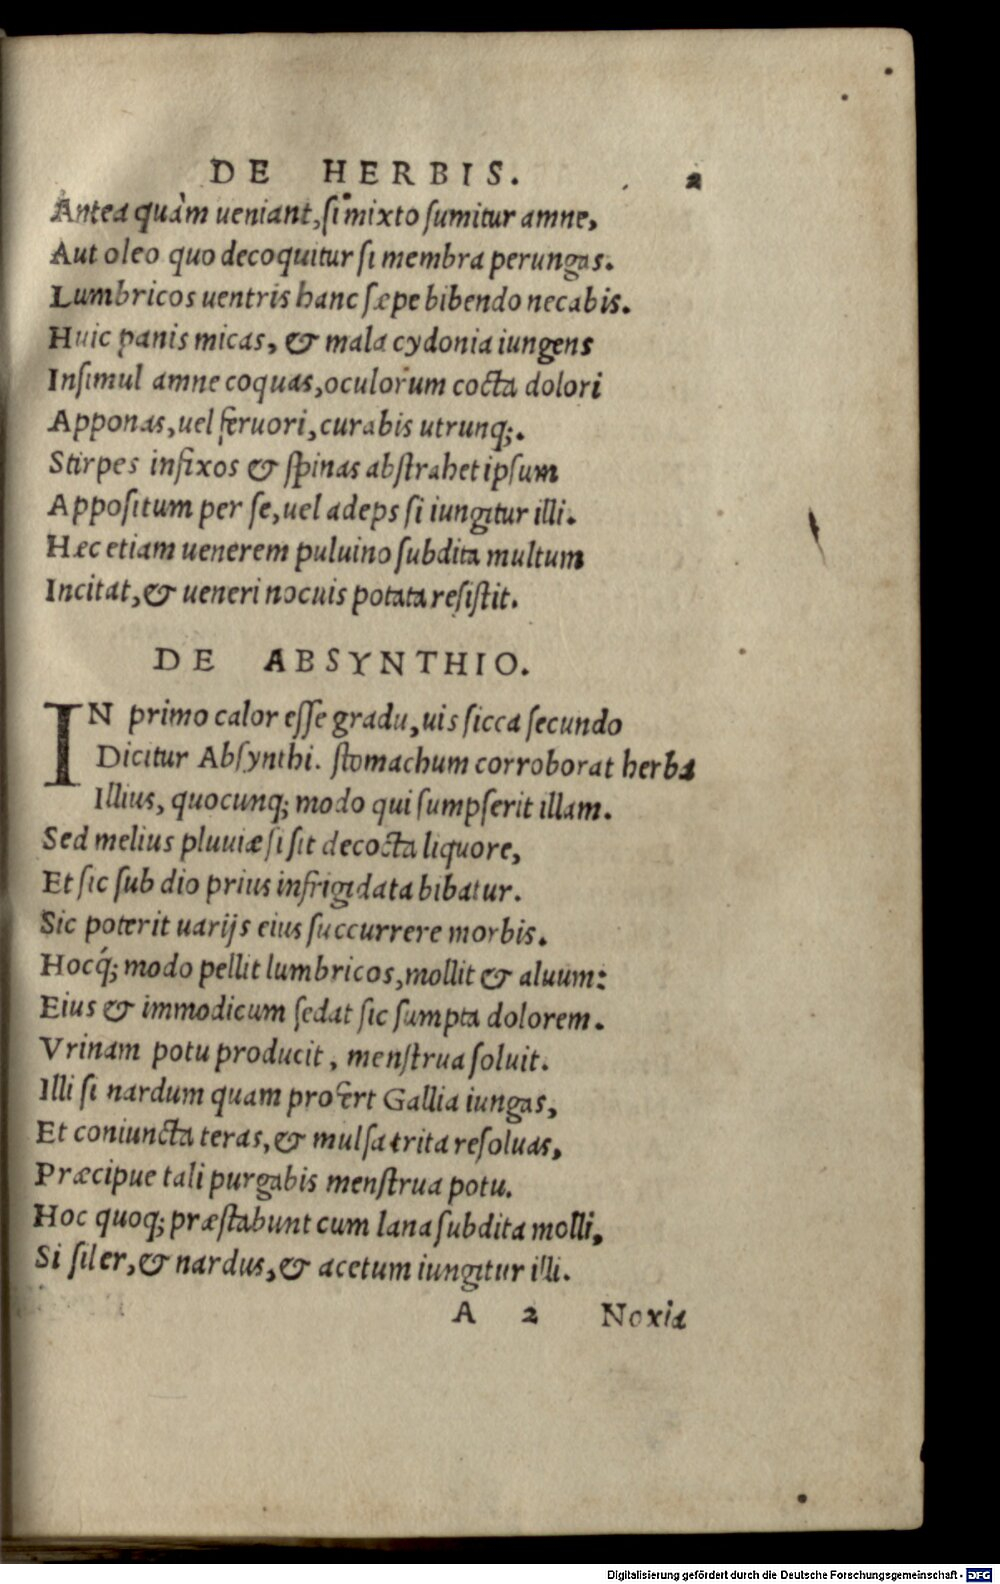 DE HERBIS. 2
Antea quàm ueniant, si mixto sumitur amne,
Aut oleo quo decoquitur si membra perungas.
Lumbricos uentris hanc sæpe bibendo necabis.
Huic panis micas, & mala cydonia iungens
Insimul amne coquas, oculorum cocta dolori
Apponas, uel feruori, curabis utrunq;.
Stirpes infixos & spinas abstrahet ipsum
Appositum per se, uel adeps si iungitur illi.
Hæc etiam uenerem puluino subdita multum
Incitat, & ueneri nocuis potata resistit.
DE ABSYNTHIO.
IN primo calor esse gradu, uis sicca secundo
Dicitur Absynthi. stomachum corroborat herba
Illius, quocunq; modo qui sumpserit illam.
Sed melius pluuiæ si sit decocta liquore,
Et sic sub dio prius infrigidata bibatur.
Sic poterit uarijs eius succurrere morbis.
Hocq́; modo pellit lumbricos, mollit & aluum:
Eius & immodicum sedat sic sumpta dolorem.
Vrinam potu producit, menstrua soluit.
Illi si nardum quam profert Gallia iungas,
Et coniuncta teras, & mulsa trita resoluas,
Præcipue tali purgabis menstrua potu.
Hoc quoq; præstabunt cum lana subdita molli,
Si siler, & nardus, & acetum iungitur illi.
A 2 Noxia
Digitalisierung gefördert durch die Deutsche Forschungsgemeinschaft - DFG